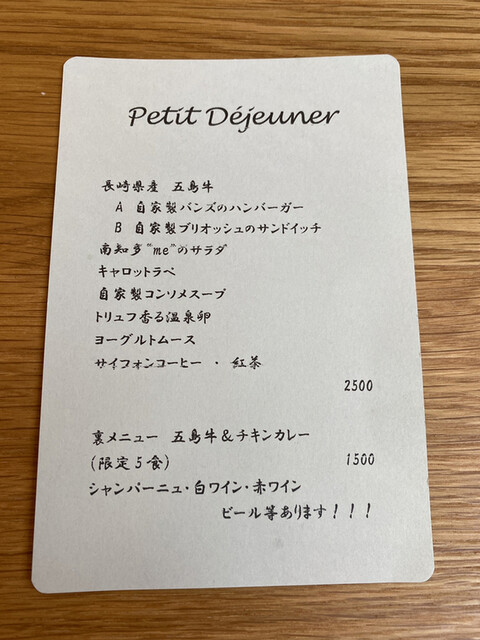 Petit Déjeuner
長崎県産 五島牛
A 自家製バンズのハンバーガー
B 自家製ブリオッシュのサンドイッチ
南知多"me"のサラダ
キャロットラペ
自家製コンソメスープ
トリュフ香る温泉卵
ヨーグルトムース
サイフォンコーヒー ・ 紅茶
2500
裏メニュー 五島牛&チキンカレー
(限定5食) 1500
シャンパーニュ・白ワイン・赤ワイン
ビール等あります!!!